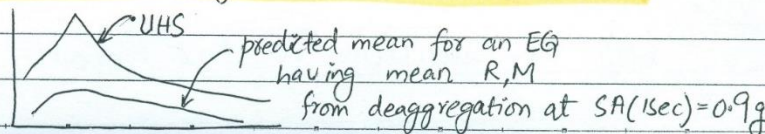 UHS
predicted mean for an EQ
having mean R,M
from deaggregation at SA(1sec)=0.9g